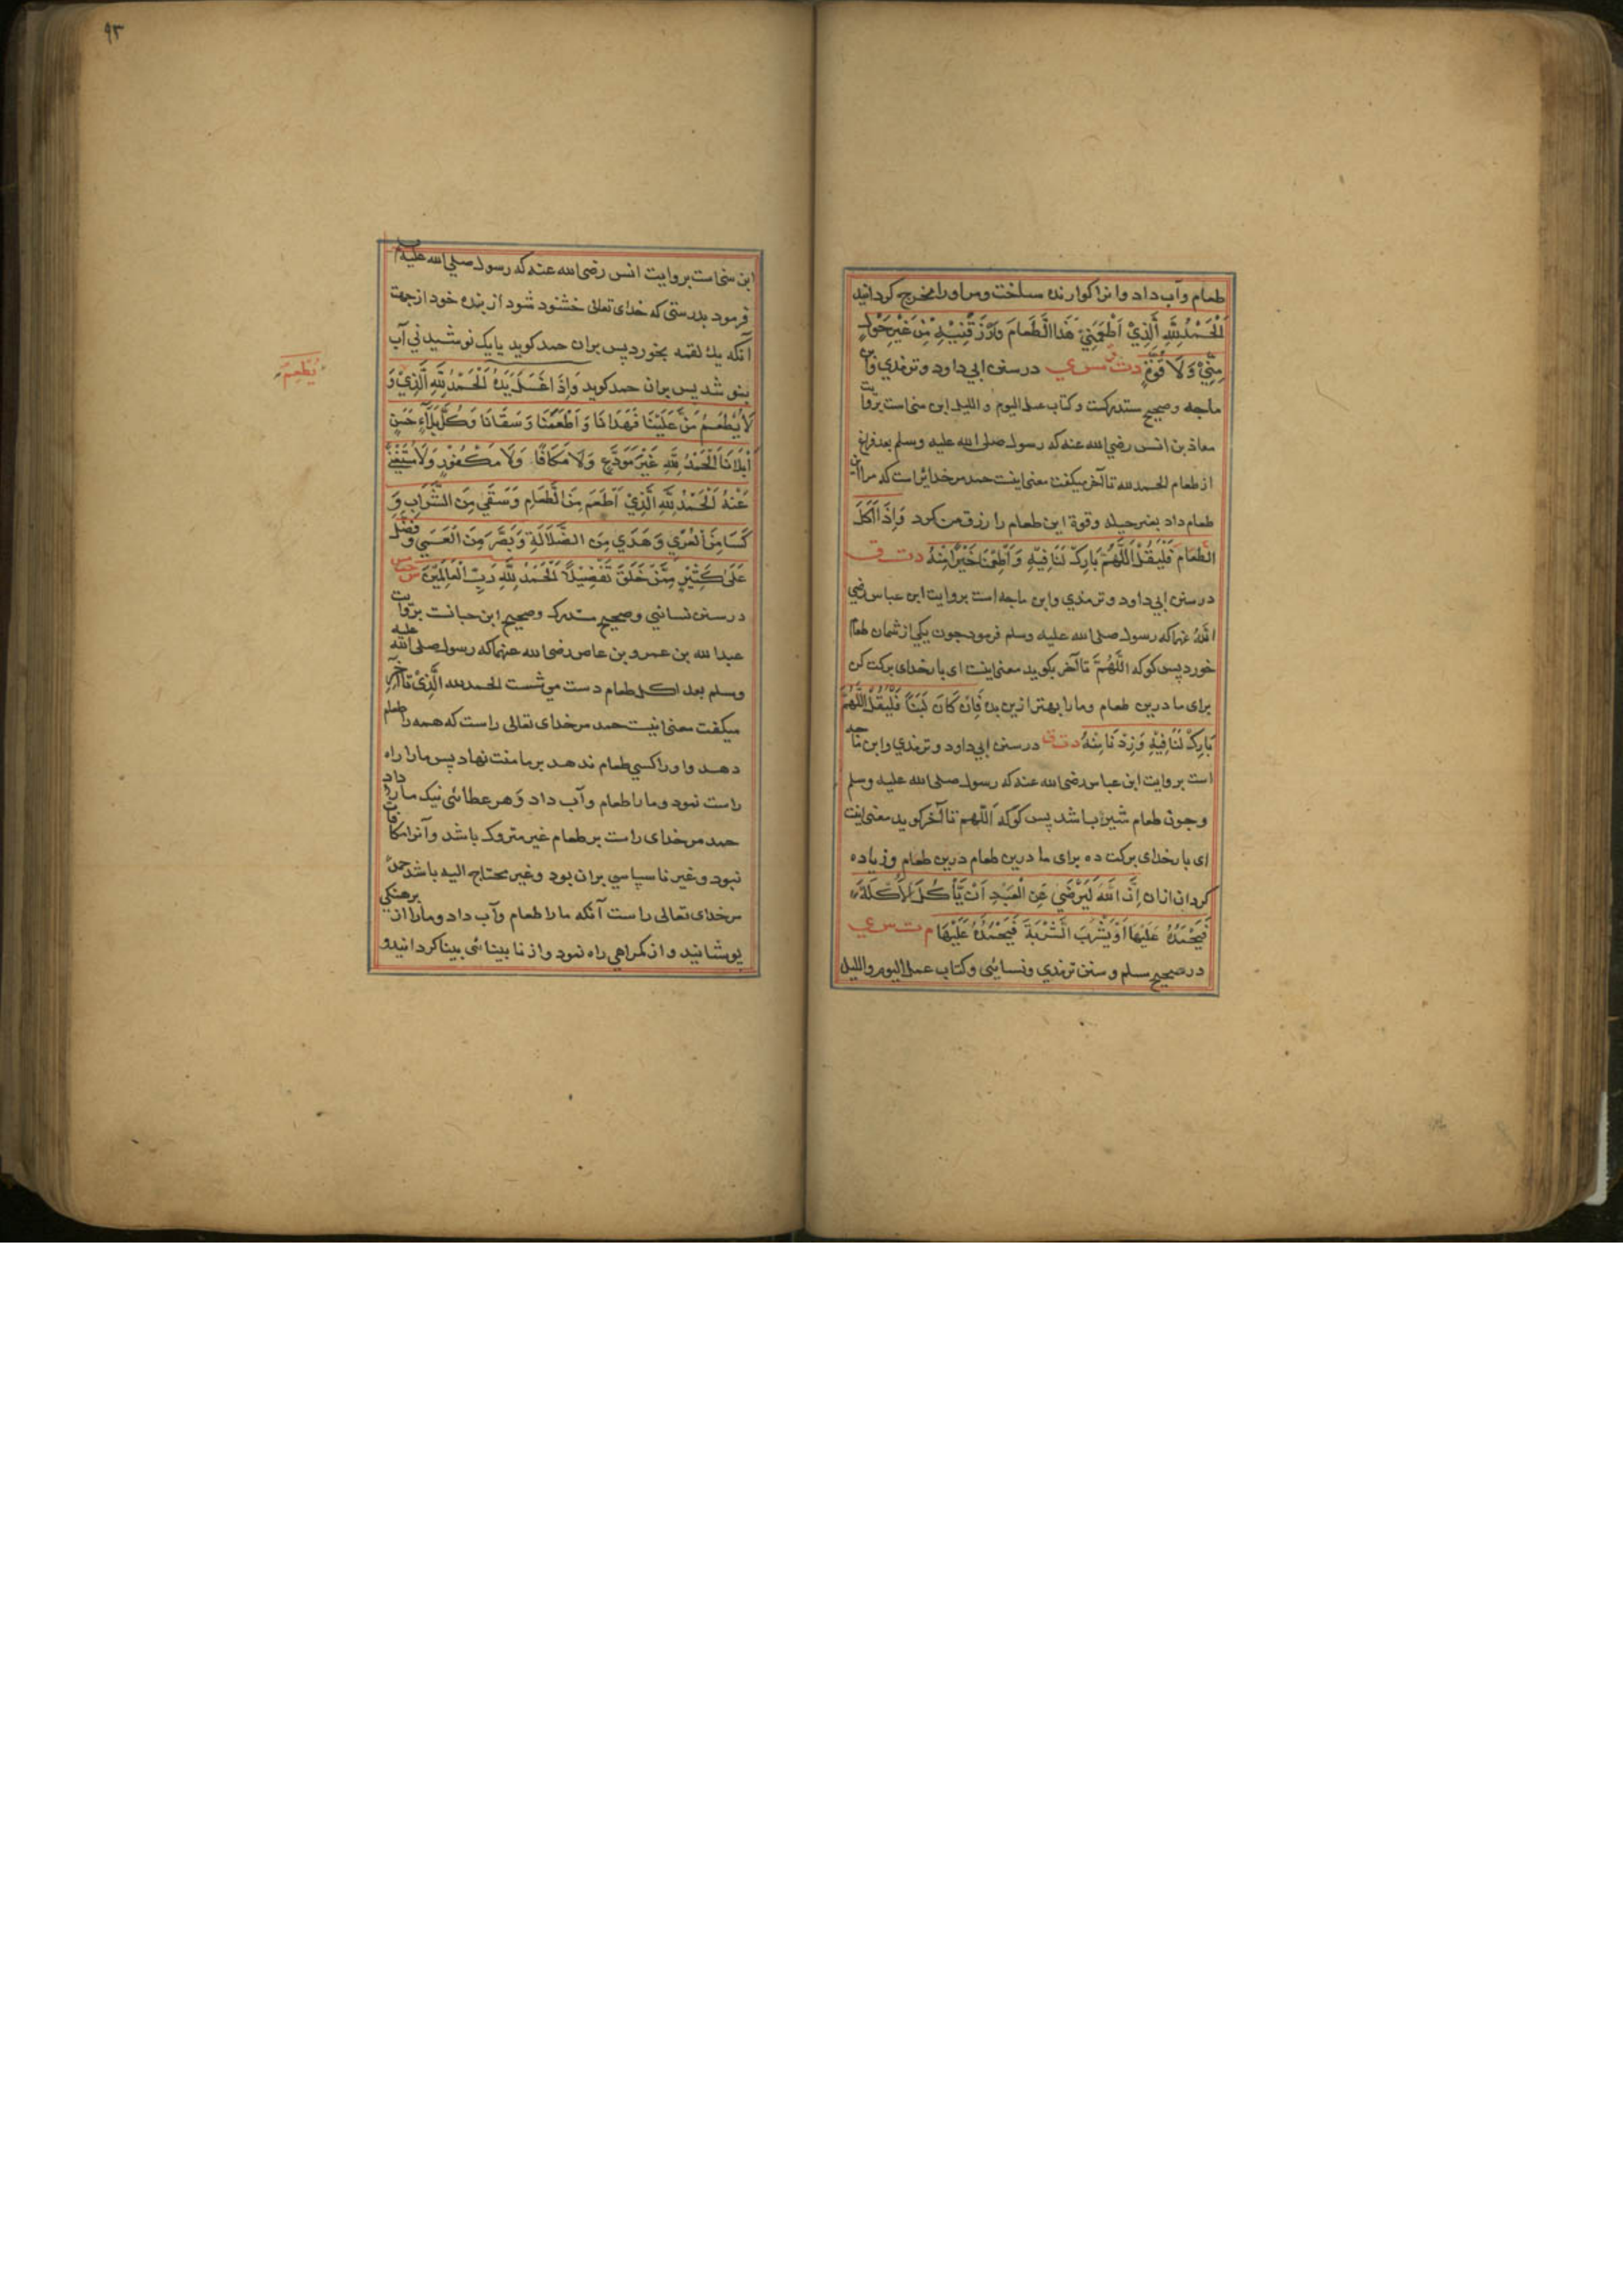 طعام وآب داد وانرا كوارنده ساخت ومر اورا مخرج كردانيد
اَلْحَمْدُ لِلّٰهِ الَّذِيْ اَطْعَمَنِيْ هٰذَا الطَّعَامَ وَرَزَقَنِيْهِ مِنْ غَيْرِ حَوْلٍ
مِنِّيْ وَلَا قُوَّةٍ دت ق مس ي در سنن ابي داود و ترمذي وابن
ماجه وصحيح مستدركست وكتاب عمل اليوم والليل ابن سني است بروايت
معاذ بن انس رضي الله عنه كه رسول صلى الله عليه وسلم بعد فراغ
از طعام الحمد لله تا آخر ميكفت معنى اينست حمد مر خدايراست كه مرا اين
طعام داد بغير حيله وقوة اين طعام را رزق من كرد وَاِذَا اَكَلَ
الطَّعَامَ فَلْيَقُلْ اَللّٰهُمَّ بَارِكْ لَنَا فِيْهِ وَاَطْعِمْنَا خَيْرًا مِنْهُ دت ق
در سنن ابي داود و ترمذي وابن ماجه است بروايت ابن عباس رضي
الله عنهما كه رسول صلى الله عليه وسلم فرمود چون يكي از شمان طعام
خورد پس كو كه اَللّٰهُمَّ تا آخر بكويد معنى اينست اى بار خداى بركت كن
براى ما درين طعام ومارا بهتر ازين بده فَاِنْ كَانَ لَبَنًا فَلْيَقُلْ اَللّٰهُمَّ
بَارِكْ لَنَا فِيْهِ وَزِدْنَا مِنْهُ دت ق در سنن ابي داود و ترمذي وابن ماجه
است بروايت ابن عباس رضى الله عنه كه رسول صلى الله عليه وسلم
وچون طعام شير باشد پس كو كه اَللّٰهم تا آخر كويد معنى اينست
اى بار خداى بركت ده براى ما درين طعام درين طعام وزياده
كردان ازان اِنَّ اللّٰهَ لَيَرْضٰى عَنِ الْعَبْدِ اَنْ يَّأْكُلَ الْاَكْلَةَ
فَيَحْمَدُهُ عَلَيْهَا اَوْ يَشْرَبَ الشَّرْبَةَ فَيَحْمَدُهُ عَلَيْهَا م ت س ي
در صحيح مسلم و سنن ترمذي ونسائي وكتاب عمل اليوم والليل
٩٣
ابن سني است بروايت انس رضى الله عنه كه رسول صلى الله عليه وسلم
فرمود بدرستى كه خداى تعالى خشنود شود از بنده خود از جهت
آنكه يك لقمه بخورد پس بران حمد كويد يا يك نوشيدني آب
بنوشد پس بران حمد كويد وَاِذَا غَسَلَ يَدَهُ اَلْحَمْدُ لِلّٰهِ الَّذِيْ وَ
لَا يُطْعَمُ مَنَّ عَلَيْنَا فَهَدَانَا وَاَطْعَمَنَا وَسَقَانَا وَكُلَّ بَلَاءٍ حَسَنٍ
يُطْعِمُ
اَبْلَانَا اَلْحَمْدُ لِلّٰهِ غَيْرَ مُوَدَّعٍ وَلَا مُكَافًا وَلَا مَكْفُوْرٍ وَلَا مُسْتَغْنًى
عَنْهُ اَلْحَمْدُ لِلّٰهِ الَّذِيْ اَطْعَمَ مِنَ الطَّعَامِ وَسَقٰى مِنَ الشَّرَابِ وَ
كَسَا مِنَ الْعُرْيِ وَهَدٰي مِنَ الضَّلَالَةِ وَبَصَّرَ مِنَ الْعَمٰي وَفَضَّلَ
عَلٰى كَثِيْرٍ مِّمَّنْ خَلَقَ تَفْضِيْلًا اَلْحَمْدُ لِلّٰهِ رَبِّ الْعَالَمِيْنَ س حب مس
در سنن نسائي وصحيح مستدرك وصحيح ابن حبانست بروايت
عبد الله بن عمرو بن عاص رضى الله عنهما كه رسول صلى الله عليه
وسلم بعد اكل طعام دست مى شست الحمد لله الَّذِيْ تا آخر
ميكفت معنى اينست حمد مر خداى تعالى راست كه همه را طعام
دهد واورا كسي طعام ندهد بر ما منت نهاد پس مارا راه
راست نمود ومارا طعام وآب داد وهر عطائى نيك مارا داد
حمد مر خداى راست بر طعام غير متروك باشد وآنرا مكافات
نبود وغير نا سپاسي بران بود وغير محتاج اليه باشد حمد
مر خداى تعالى راست آنكه مارا طعام وآب داد ومارا از برهنكي
پوشانيد واز كمراهي راه نمود واز نا بينائى بينا كردانيد و